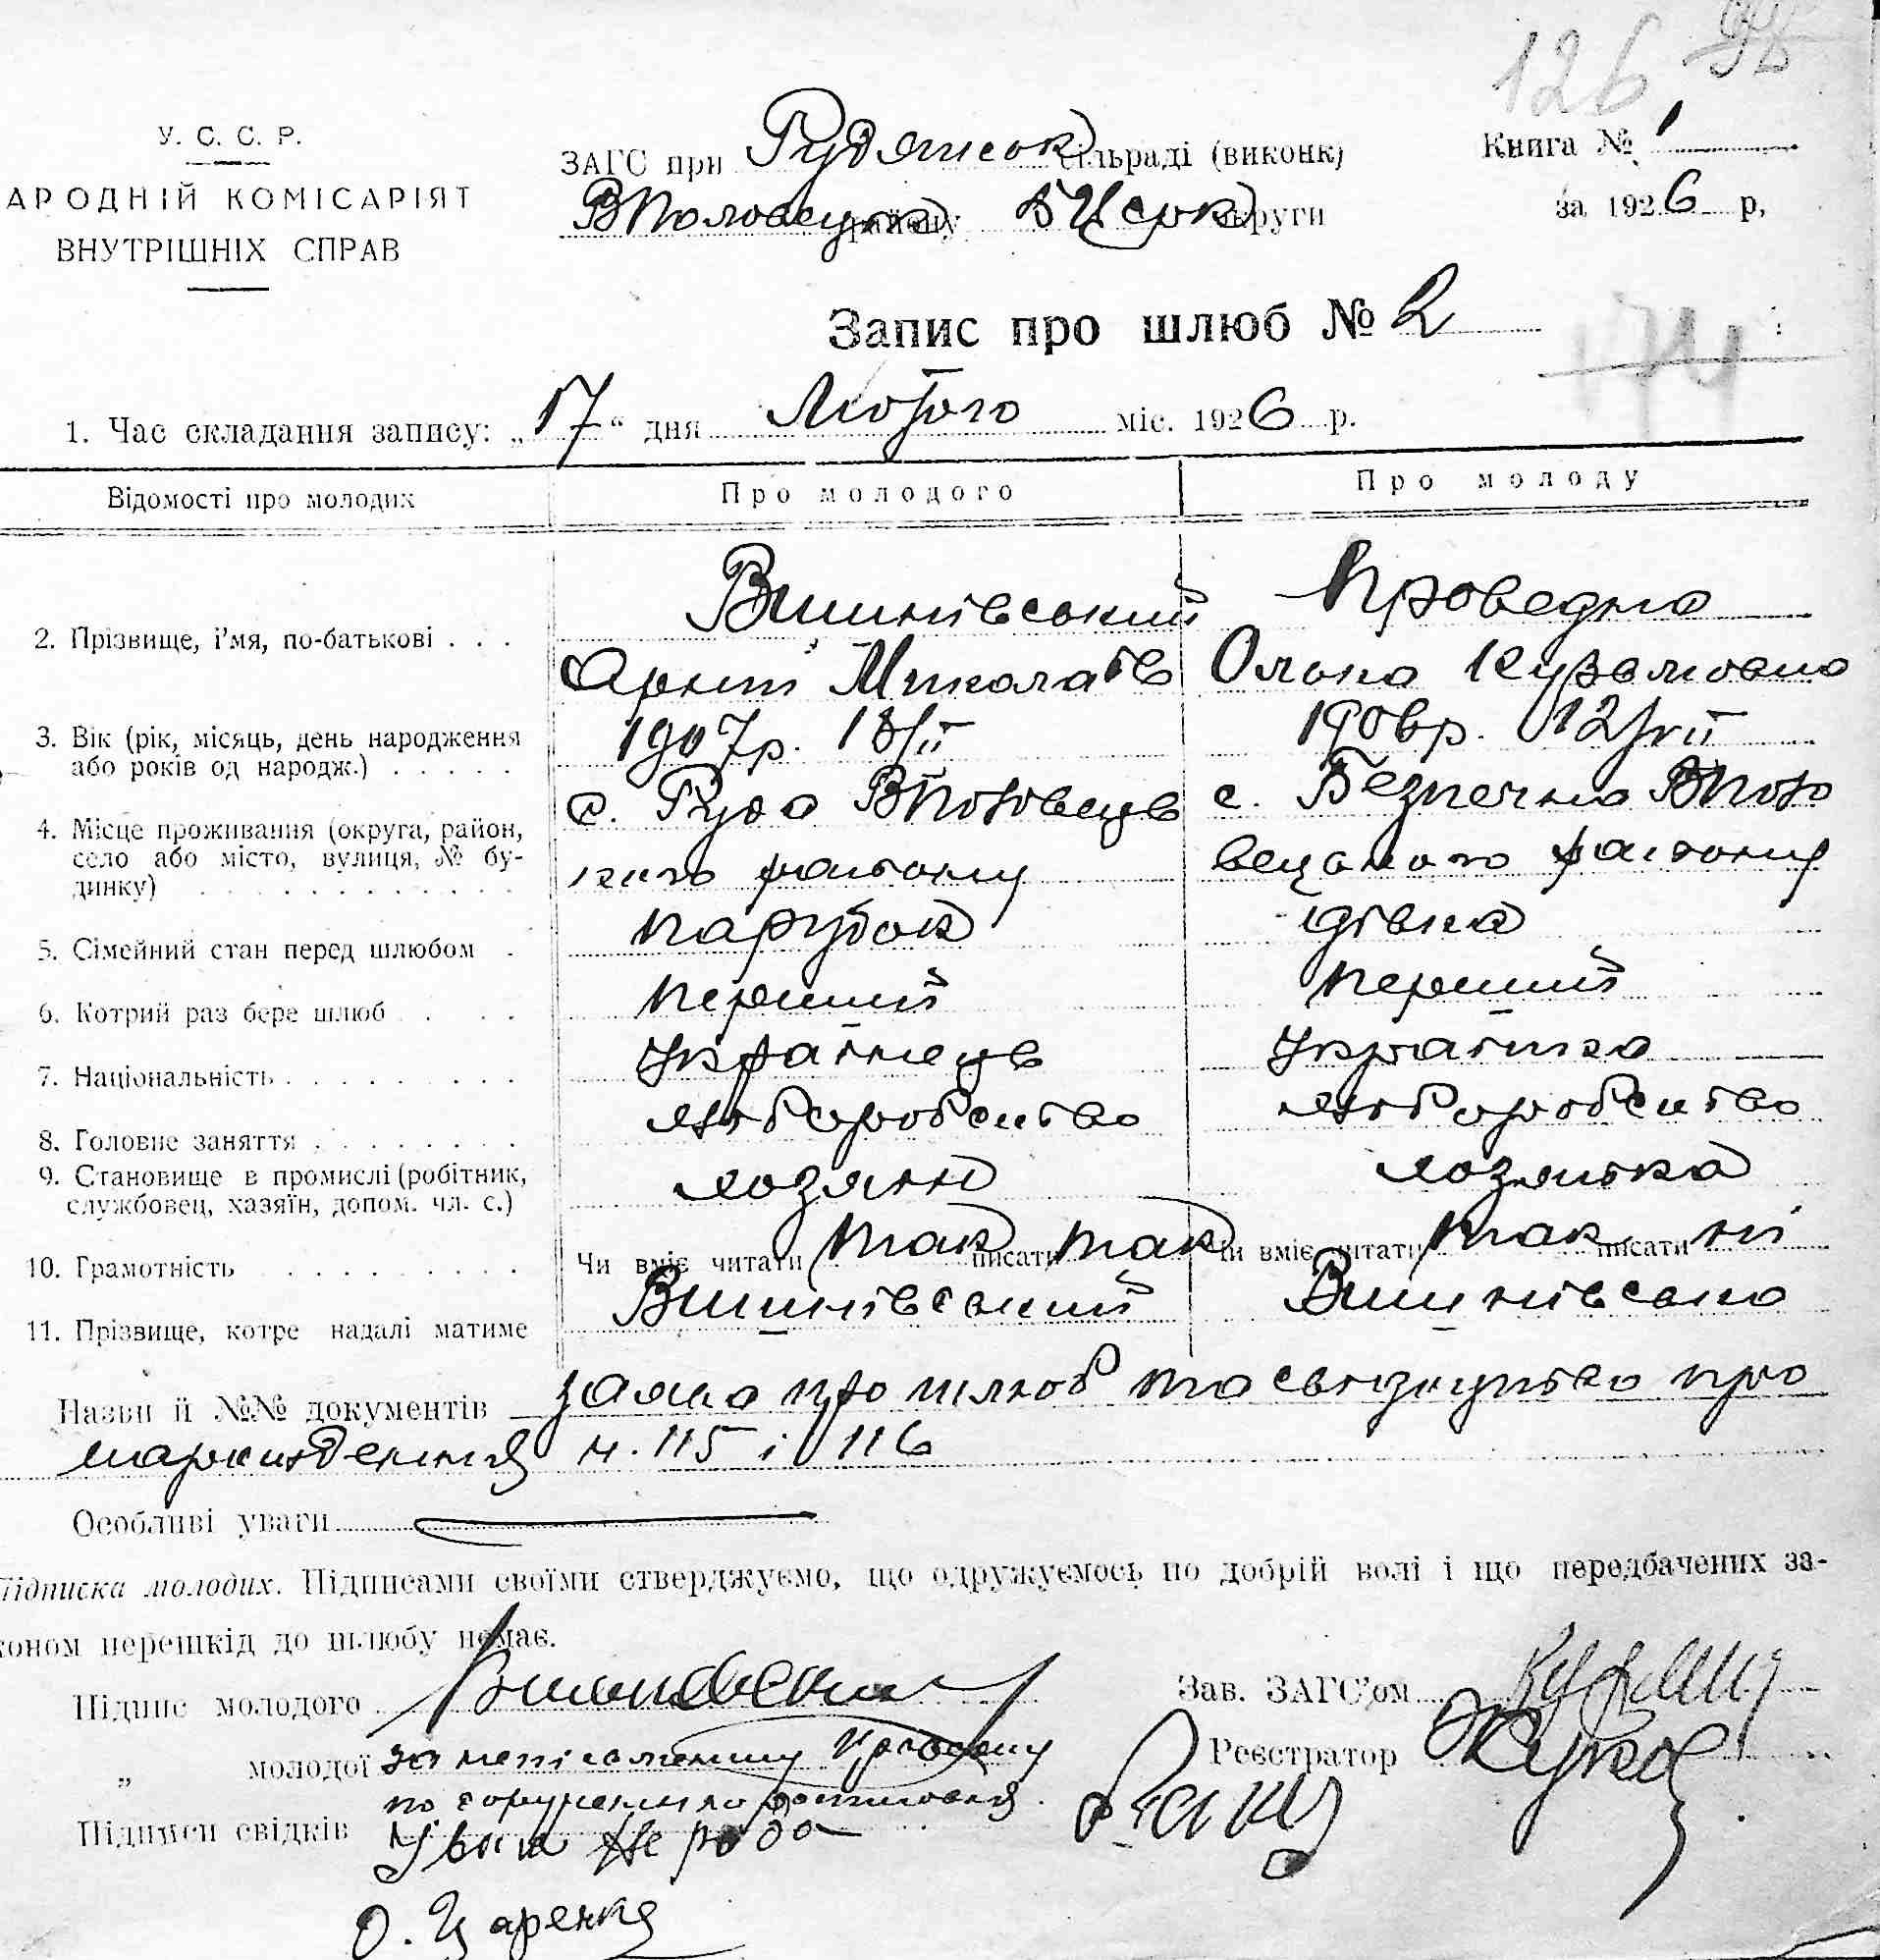 126
У. С. С. Р.
АРОДНІЙ КОМІСАРІЯТ
ВНУТРІШНІХ СПРАВ
ЗАГС при Рудянськ сільраді (виконк)
ВПоловецьк району БЦерк округи
Книга № 1
за 1926 р,
Запис про шлюб № 2
174
1. Час складання запису: „17“ дня Лютого міс. 1926 р.
Відомості про молодих
Про молодого
Про молоду
2. Прізвище, і'мя, по-батькові . . .
Вишнівський
Арнит Миколаїв
Проведна
Олька Кузьмовна
3. Вік (рік, місяць, день народження
або років од народж.) . . . . .
1907р. 18/ІІ
1906р. 12/VІІ
4. Місце проживання (округа, район,
село або місто, вулиця, № бу-
динку) . . . . . . . . . . . .
с. Руда ВПоловець
кого району
с. Безпечна ВПоло
вецького району
5. Сімейний стан перед шлюбом .
парубок
дівка
6. Котрий раз бере шлюб . . . .
перший
перший
7. Національність . . . . . . . . .
Українець
Українка
8. Головне заняття . . . . . . . .
хліборобство
хліборобство
9. Становище в промислі (робітник,
службовец, хазяїн, допом. чл. с.)
хозяин
хозяйка
10. Грамотність . . . . . . . . .
Чи вміє читати так писати так
Чи вміє читати так писати ні
11. Прізвище, котре надалі матиме
Вишнівський
Вишнівська
Назви й №№ документів заява про шлюб та свідоцтва про
народження н. 115 і 116
Особливі уваги
Підписка молодих. Підписами своїми стверджуємо, що одружуємось по добрій волі і що передбачених за-
коном перешкід до шлюбу немає.
Підпис молодого
Зав. ЗАГС'ом
„ молодої за неписьменну
Реєстратор
по
Підписи свідків
О. Царенко